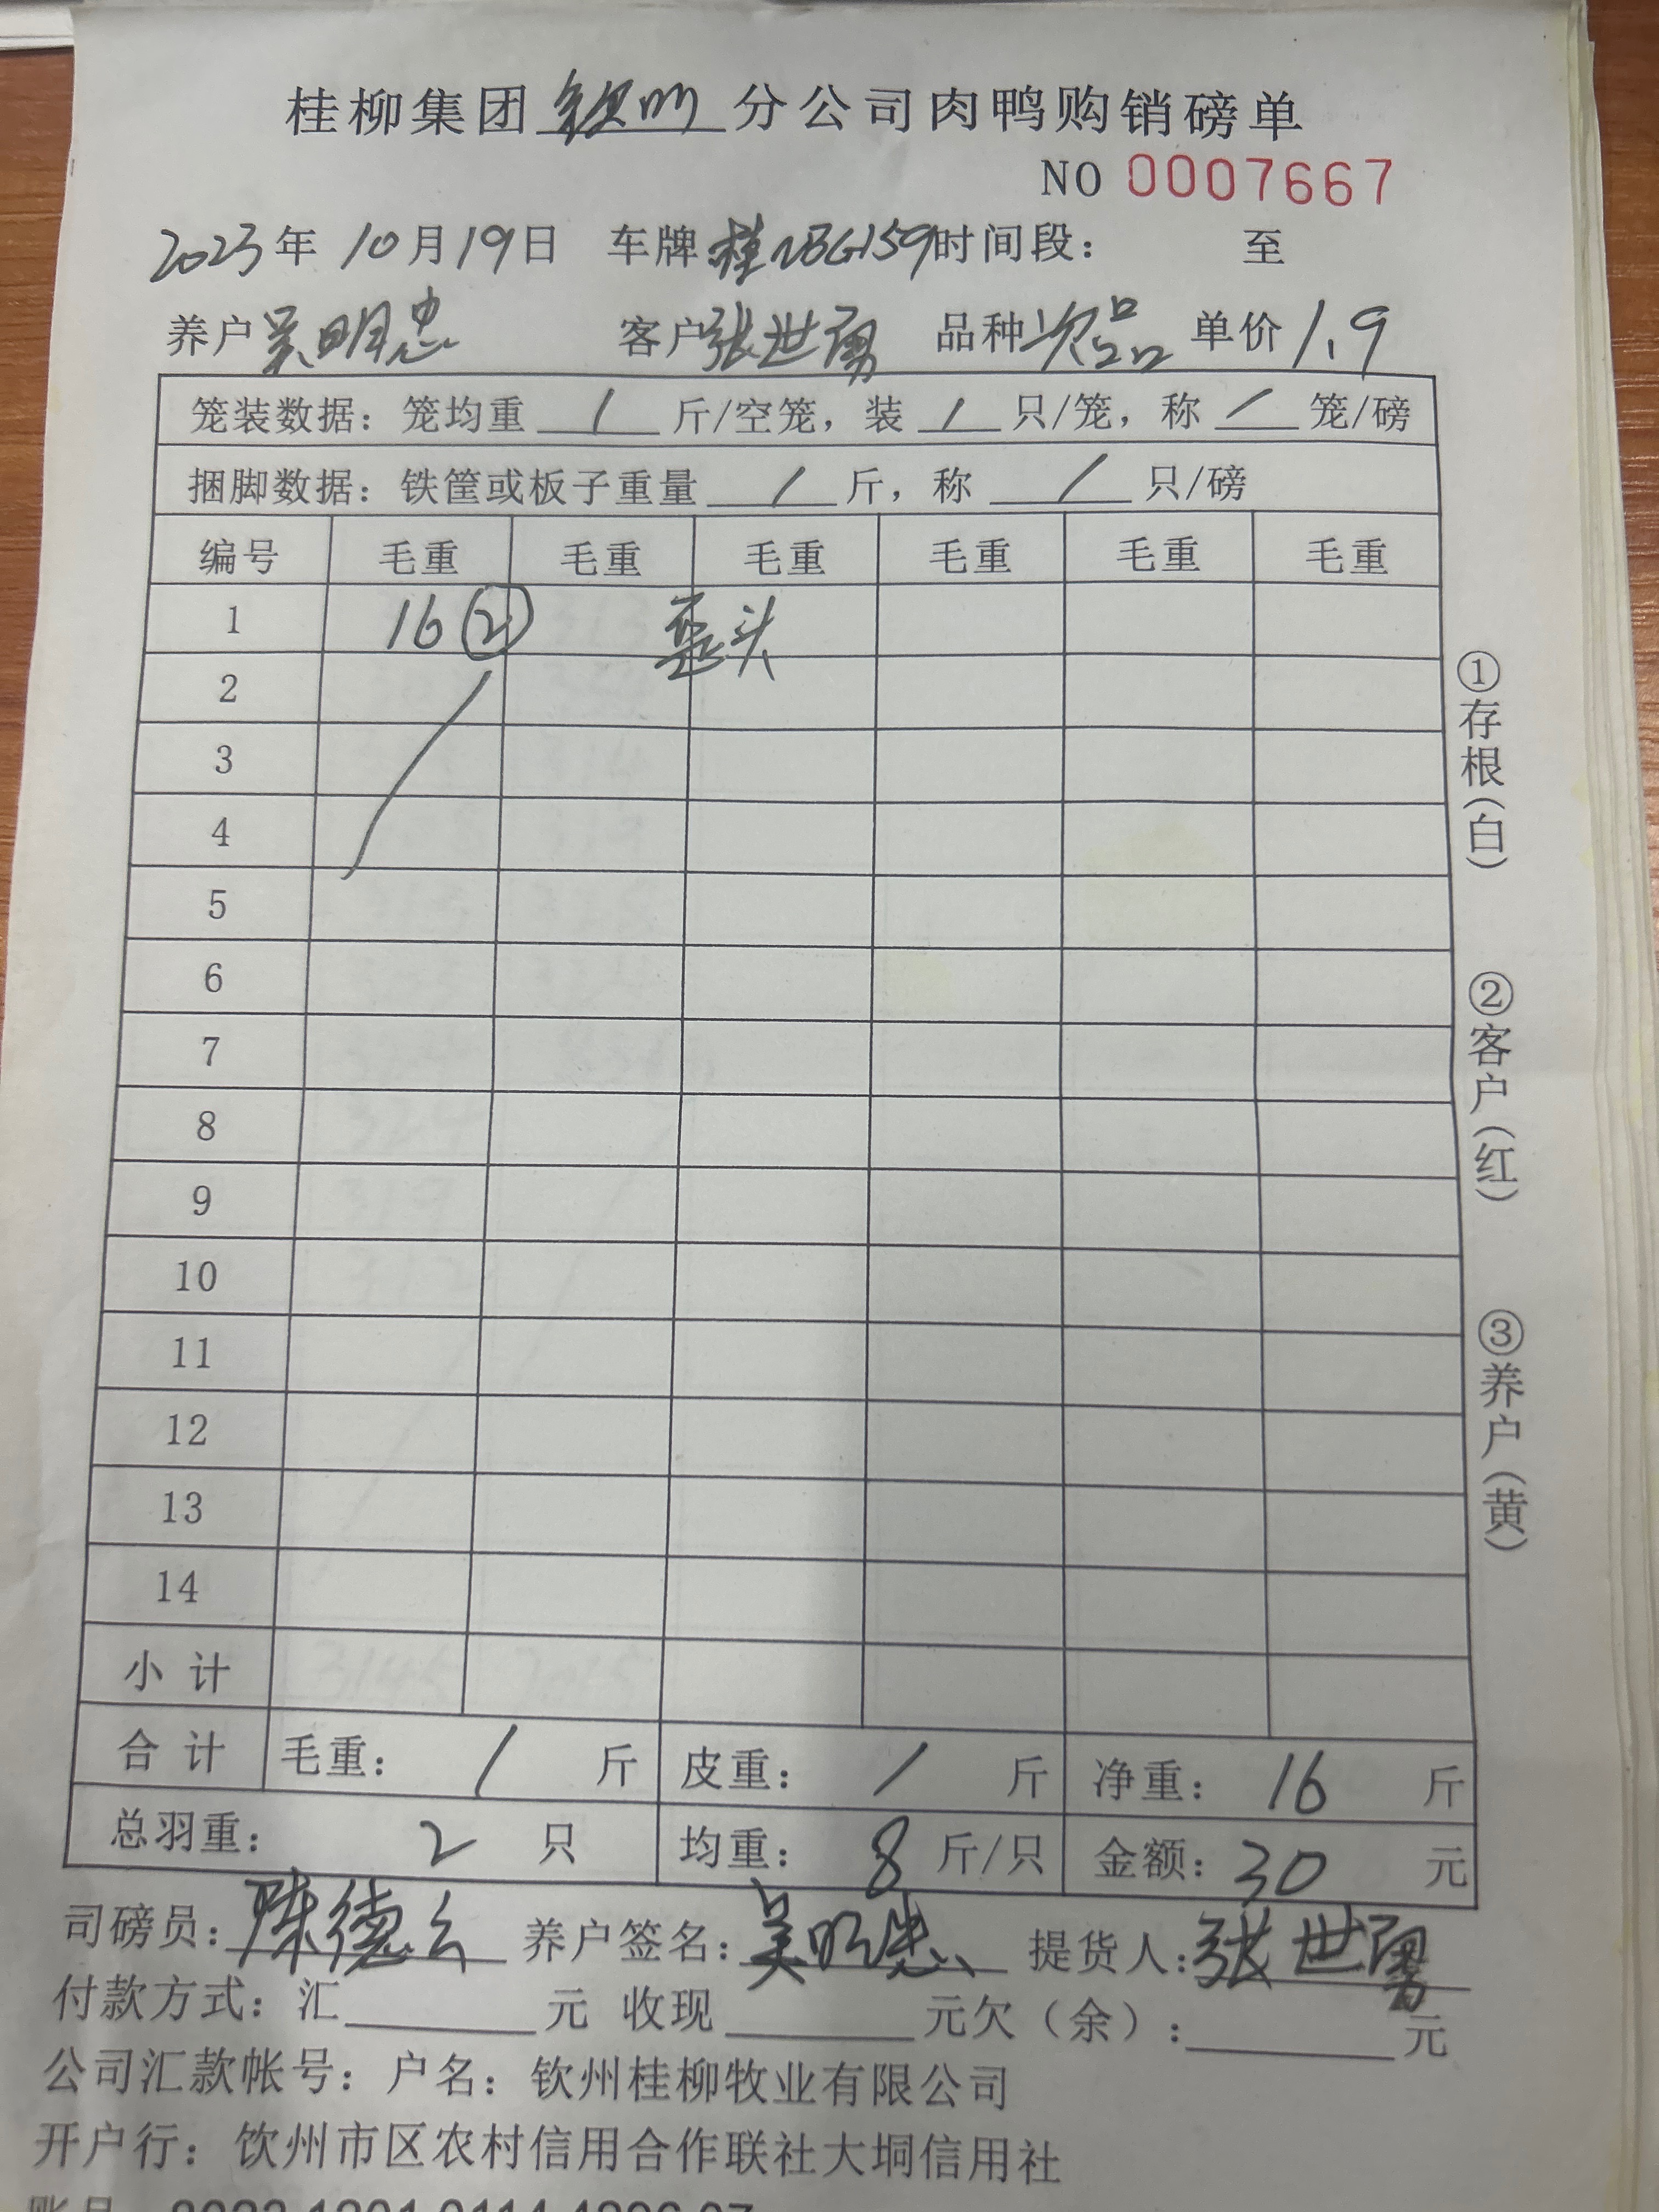 桂柳集团钦州分公司肉鸭购销磅单
NO 0007667
2023年 10月19日 车牌桂 时间段: 至
养户吴明忠 客户张世勇 品种次品 单价1.9
笼装数据: 笼均重 / 斤/空笼, 装 / 只/笼, 称 / 笼/磅
捆脚数据: 铁筐或板子重量 / 斤, 称 / 只/磅
编号 毛重 毛重 毛重 毛重 毛重 毛重
1 16② 头
2
3
4
5
6
7
8
9
10
11
12
13
14
小 计
合 计 毛重: / 斤 皮重: / 斤 净重: 16 斤
总羽重: 2 只 均重: 8 斤/只 金额: 30 元
司磅员: 陈德 养户签名: 吴明忠 提货人: 张世勇
付款方式: 汇 元 收现 元欠(余): 元
公司汇款帐号: 户名: 钦州桂柳牧业有限公司
开户行: 钦州市区农村信用合作联社大垌信用社
①存根(白)
②客户(红)
③养户(黄)